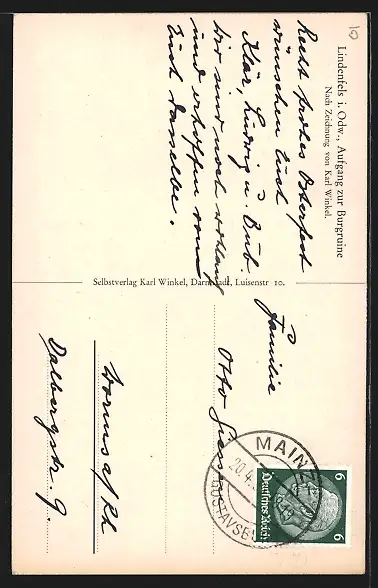 10
Lindenfels i. Odw., Aufgang zur Burgruine
Nach Zeichnung von Karl Winkel.
Recht frohes Osterfest
wünschen Euch
Klär, Ludwig u. Bub.
Wir sind noch wohlauf
und erhoffen von
Euch dasselbe.
Selbstverlag Karl Winkel, Darmstadt, Luisenstr 10.
Familie
Otto
Worms a/Rh
Dalbergstr. 9.
MAINZ
20.4.
GUSTAVSB
Deutsches Reich
6 6